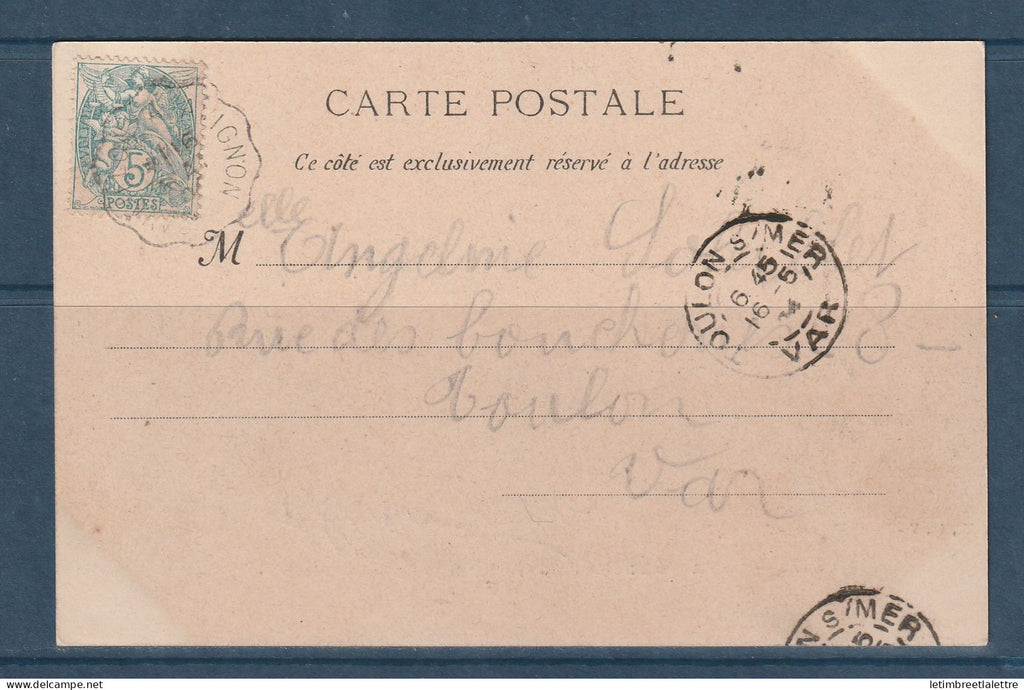 CARTE POSTALE
Ce côté est exclusivement réservé à l'adresse
5
POSTES
IGNON
M elle Angeline
Rue des 8 -
Toulon
Var
TOULON S/MER
6 45
16 -5
VAR
N S/MER
delcampe.net
letimbreetlalettre